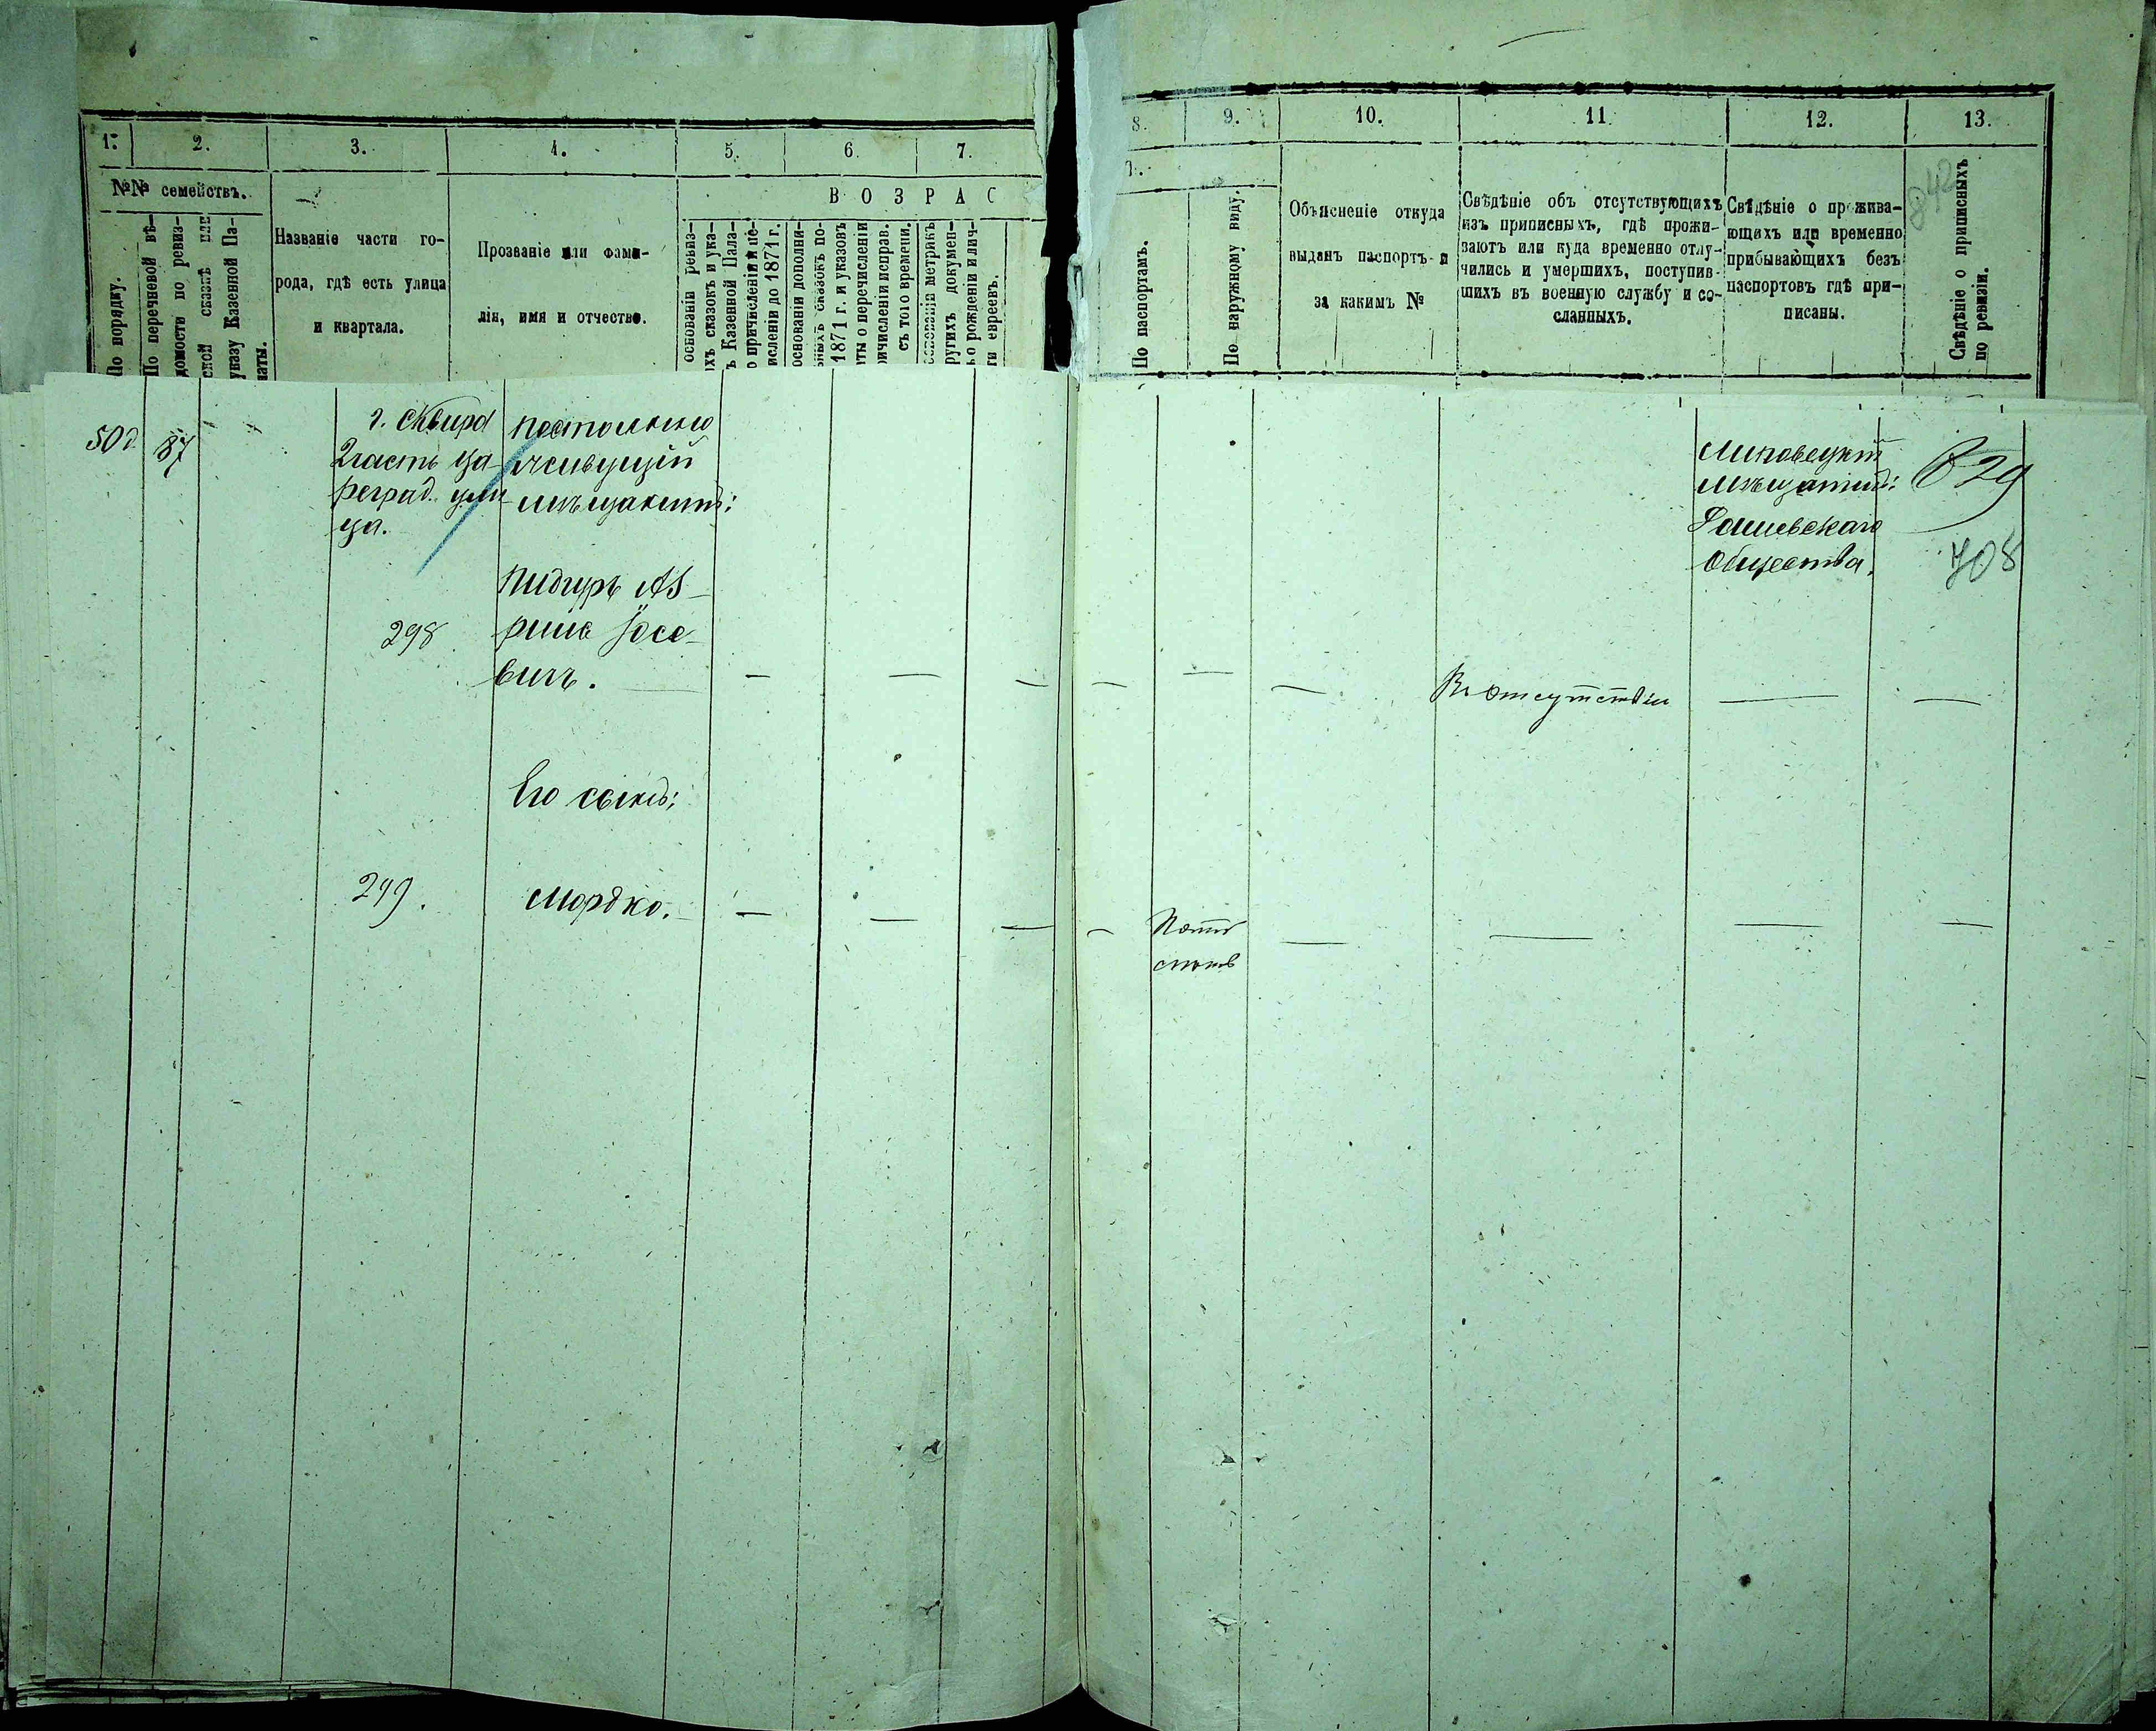 1.
2.
3.
4.
5.
6.
7.
№№ семействъ.
По порядку.
По перечневой вѣ-
домости по ревиз-
ской сказкѣ или
указу Казенной Па-
латы.
Названіе части го-
рода, гдѣ есть улица
и квартала.
Прозваніе или фами-
лія, имя и отчество.
ВОЗРАС
основаніи ревиз-
хъ сказокъ и ука-
ъ Казенной Пала-
о причисленіи и пе-
исленіи до 1871 г.
основаніи дополни-
ныхъ сказокъ по-
1871 г. и указовъ
ты о перечисленіи
ичисленіи исправ.
съ того времени.
основаніи метрикъ
ругихъ докумен-
ъ о рожденіи и лич-
ти евреевъ.
8.
9.
10.
11.
12.
13.
Т.
По паспортамъ.
По наружному виду.
Объясненіе откуда
выданъ паспортъ и
за какимъ №
Свѣдѣніе объ отсутствующихъ
изъ приписныхъ, гдѣ прожи-
ваютъ или куда временно отлу-
чились и умершихъ, поступив-
шихъ въ военную службу и со-
сланныхъ.
Свѣдѣніе о прожива-
ющихъ или временно
прибывающихъ безъ
паспортовъ гдѣ при-
писаны.
Свѣдѣніе о приписныхъ
по ревизіи.
50
87
г. Сквира
2 часть Ца
реград. ули
ца.
постоянно
живущій
мѣщанинъ:
298
Пидгуръ
Іосе-
вичъ.
Въ отсутствіи
Липовецкій
мѣщанинъ:
Общества.
829
708
Его сынъ:
299.
Мордко.